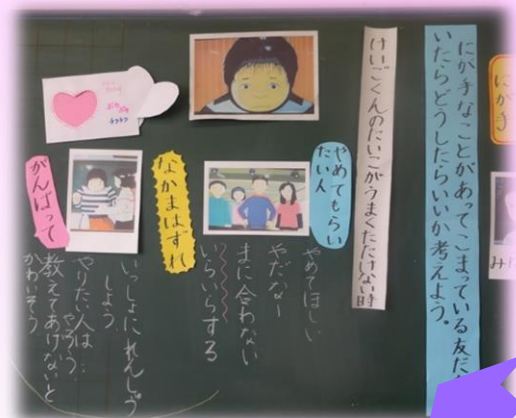 にが手
み
にが手なことがあって、こまっている友だ
いたらどうしたらいいか考えよう。
けいごくんのたいこがうまくたたけない時
やめてもらい
たい人
やめてほしい
やだなー
まに合わない
いらいらする
なかまはずれ
がんばって
いっしょに れんしゅう
しよう
やりたい人は…
やろう
教えてあげないと
かわいそう